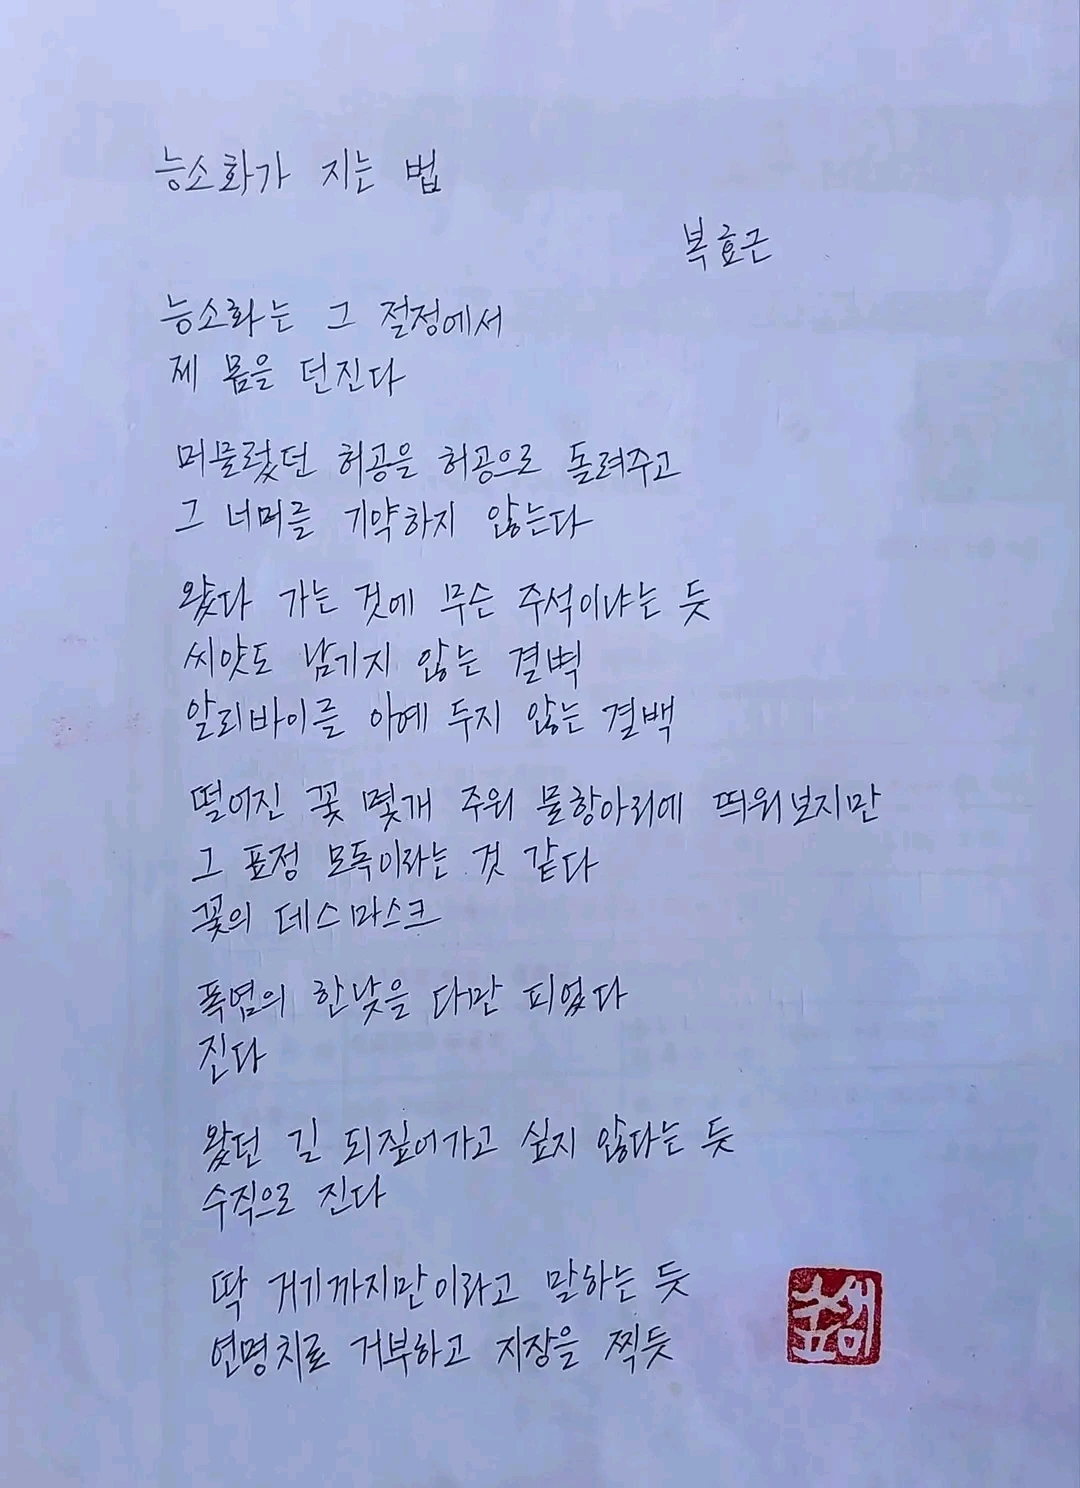 능소화가 지는 법
복효근
능소화는 그 절정에서
제 몸을 던진다
머물렀던 허공을 허공으로 돌려주고
그 너머를 기약하지 않는다
왔다 가는 것에 무슨 주석이냐는 듯
씨앗도 남기지 않는 결벽
알리바이를 아예 두지 않는 결백
떨어진 꽃 몇개 주워 물항아리에 띄워보지만
그 표정 모독이라는 것 같다
꽃의 데스마스크
폭염의 한낮을 다만 피었다
진다
왔던 길 되짚어가고 싶지 않다는 듯
수직으로 진다
딱 거기까지만이라고 말하는 듯
연명치료 거부하고 지장을 찍듯